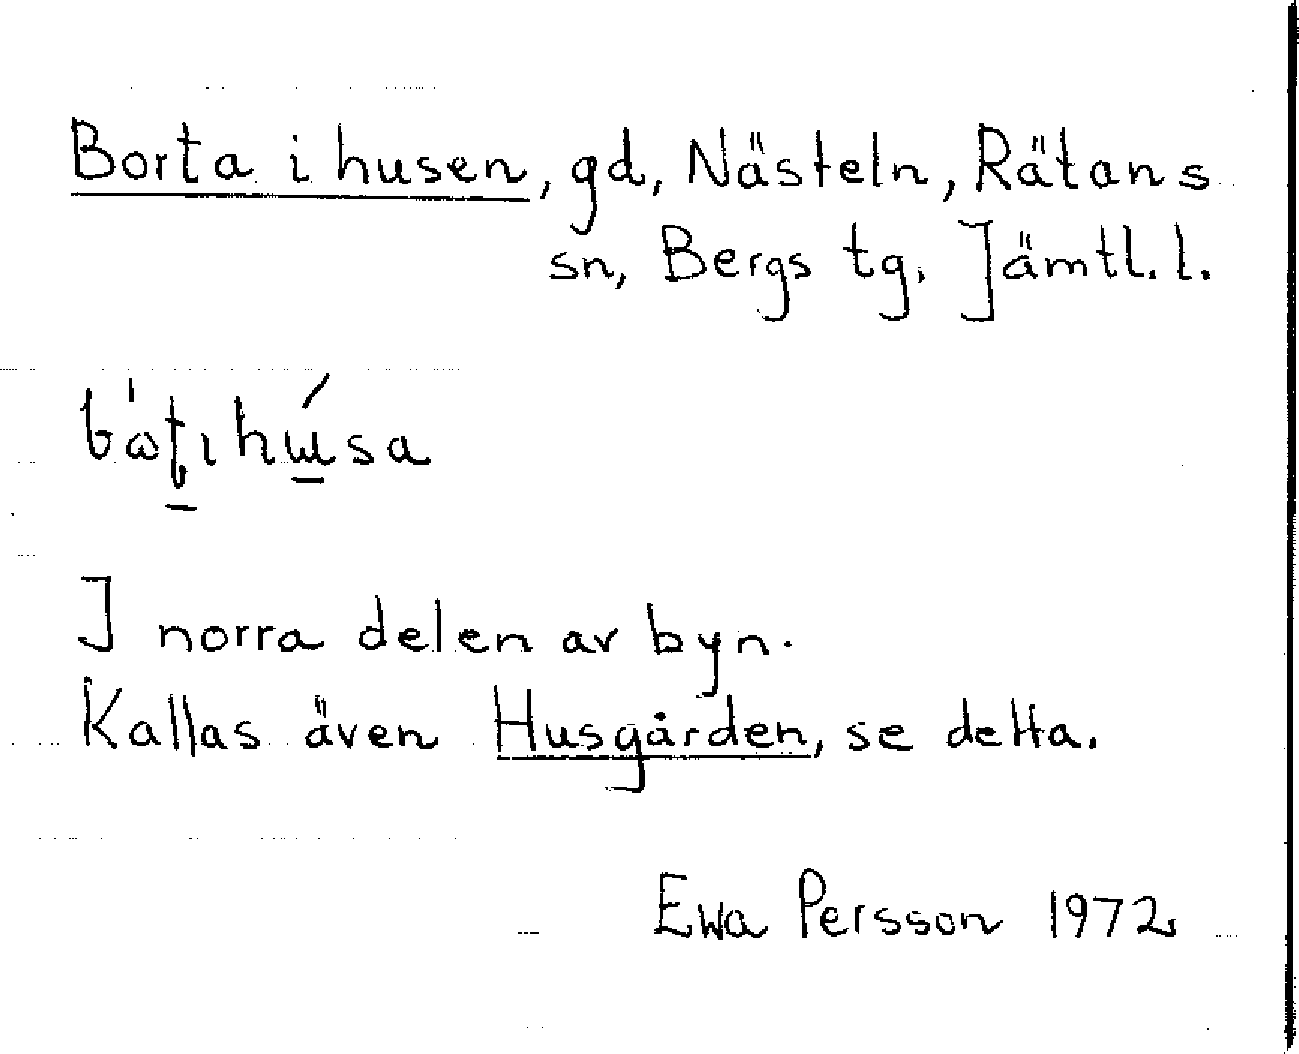 Borta i husen, gd, Nästeln, Rätans
sn, Bergs tg. Jämtl. l.
I norra delen av byn.
Kallas även Husgården, se detta.
Ewa Persson 1972